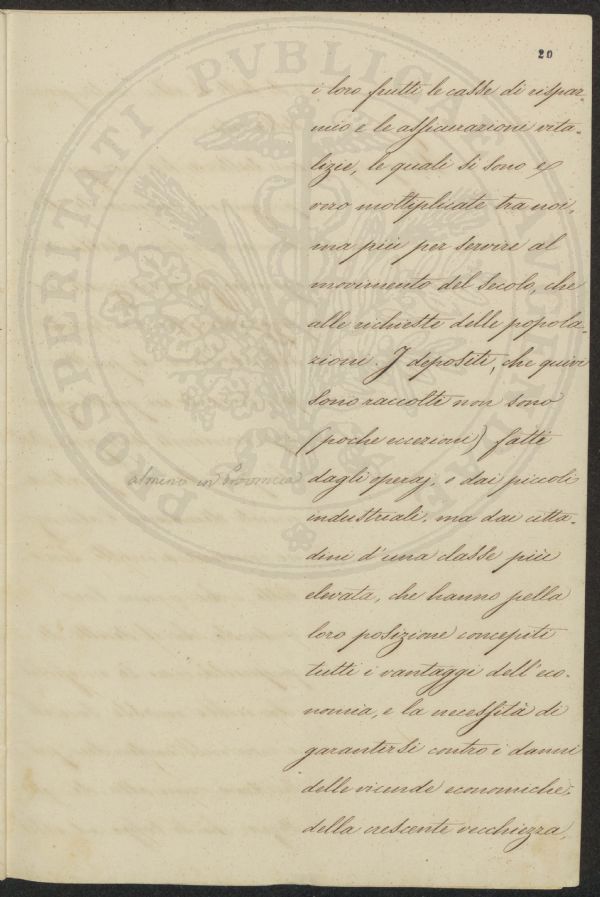 20
i loro frutti le casse di rispar-
mio e le assicurazioni vita-
lizie, le quali si sono è
vero moltiplicate tra noi,
ma più per servire al
movimento del secolo, che
alle richieste delle popola-
zioni. I depositi, che quivi
sono raccolti non sono
(poche eccezioni) fatti
almeno in Provincia
dagli operaj, o dai piccoli
industriali, ma dai citta-
dini d'una classe più
elevata, che hanno pella
loro posizione concepiti
tutti i vantaggi dell'eco-
nomia, e la necessità di
garantirsi contro i danni
delle vicende economiche,
della crescente vecchiezza,
PROSPERITATI PVBLICAE